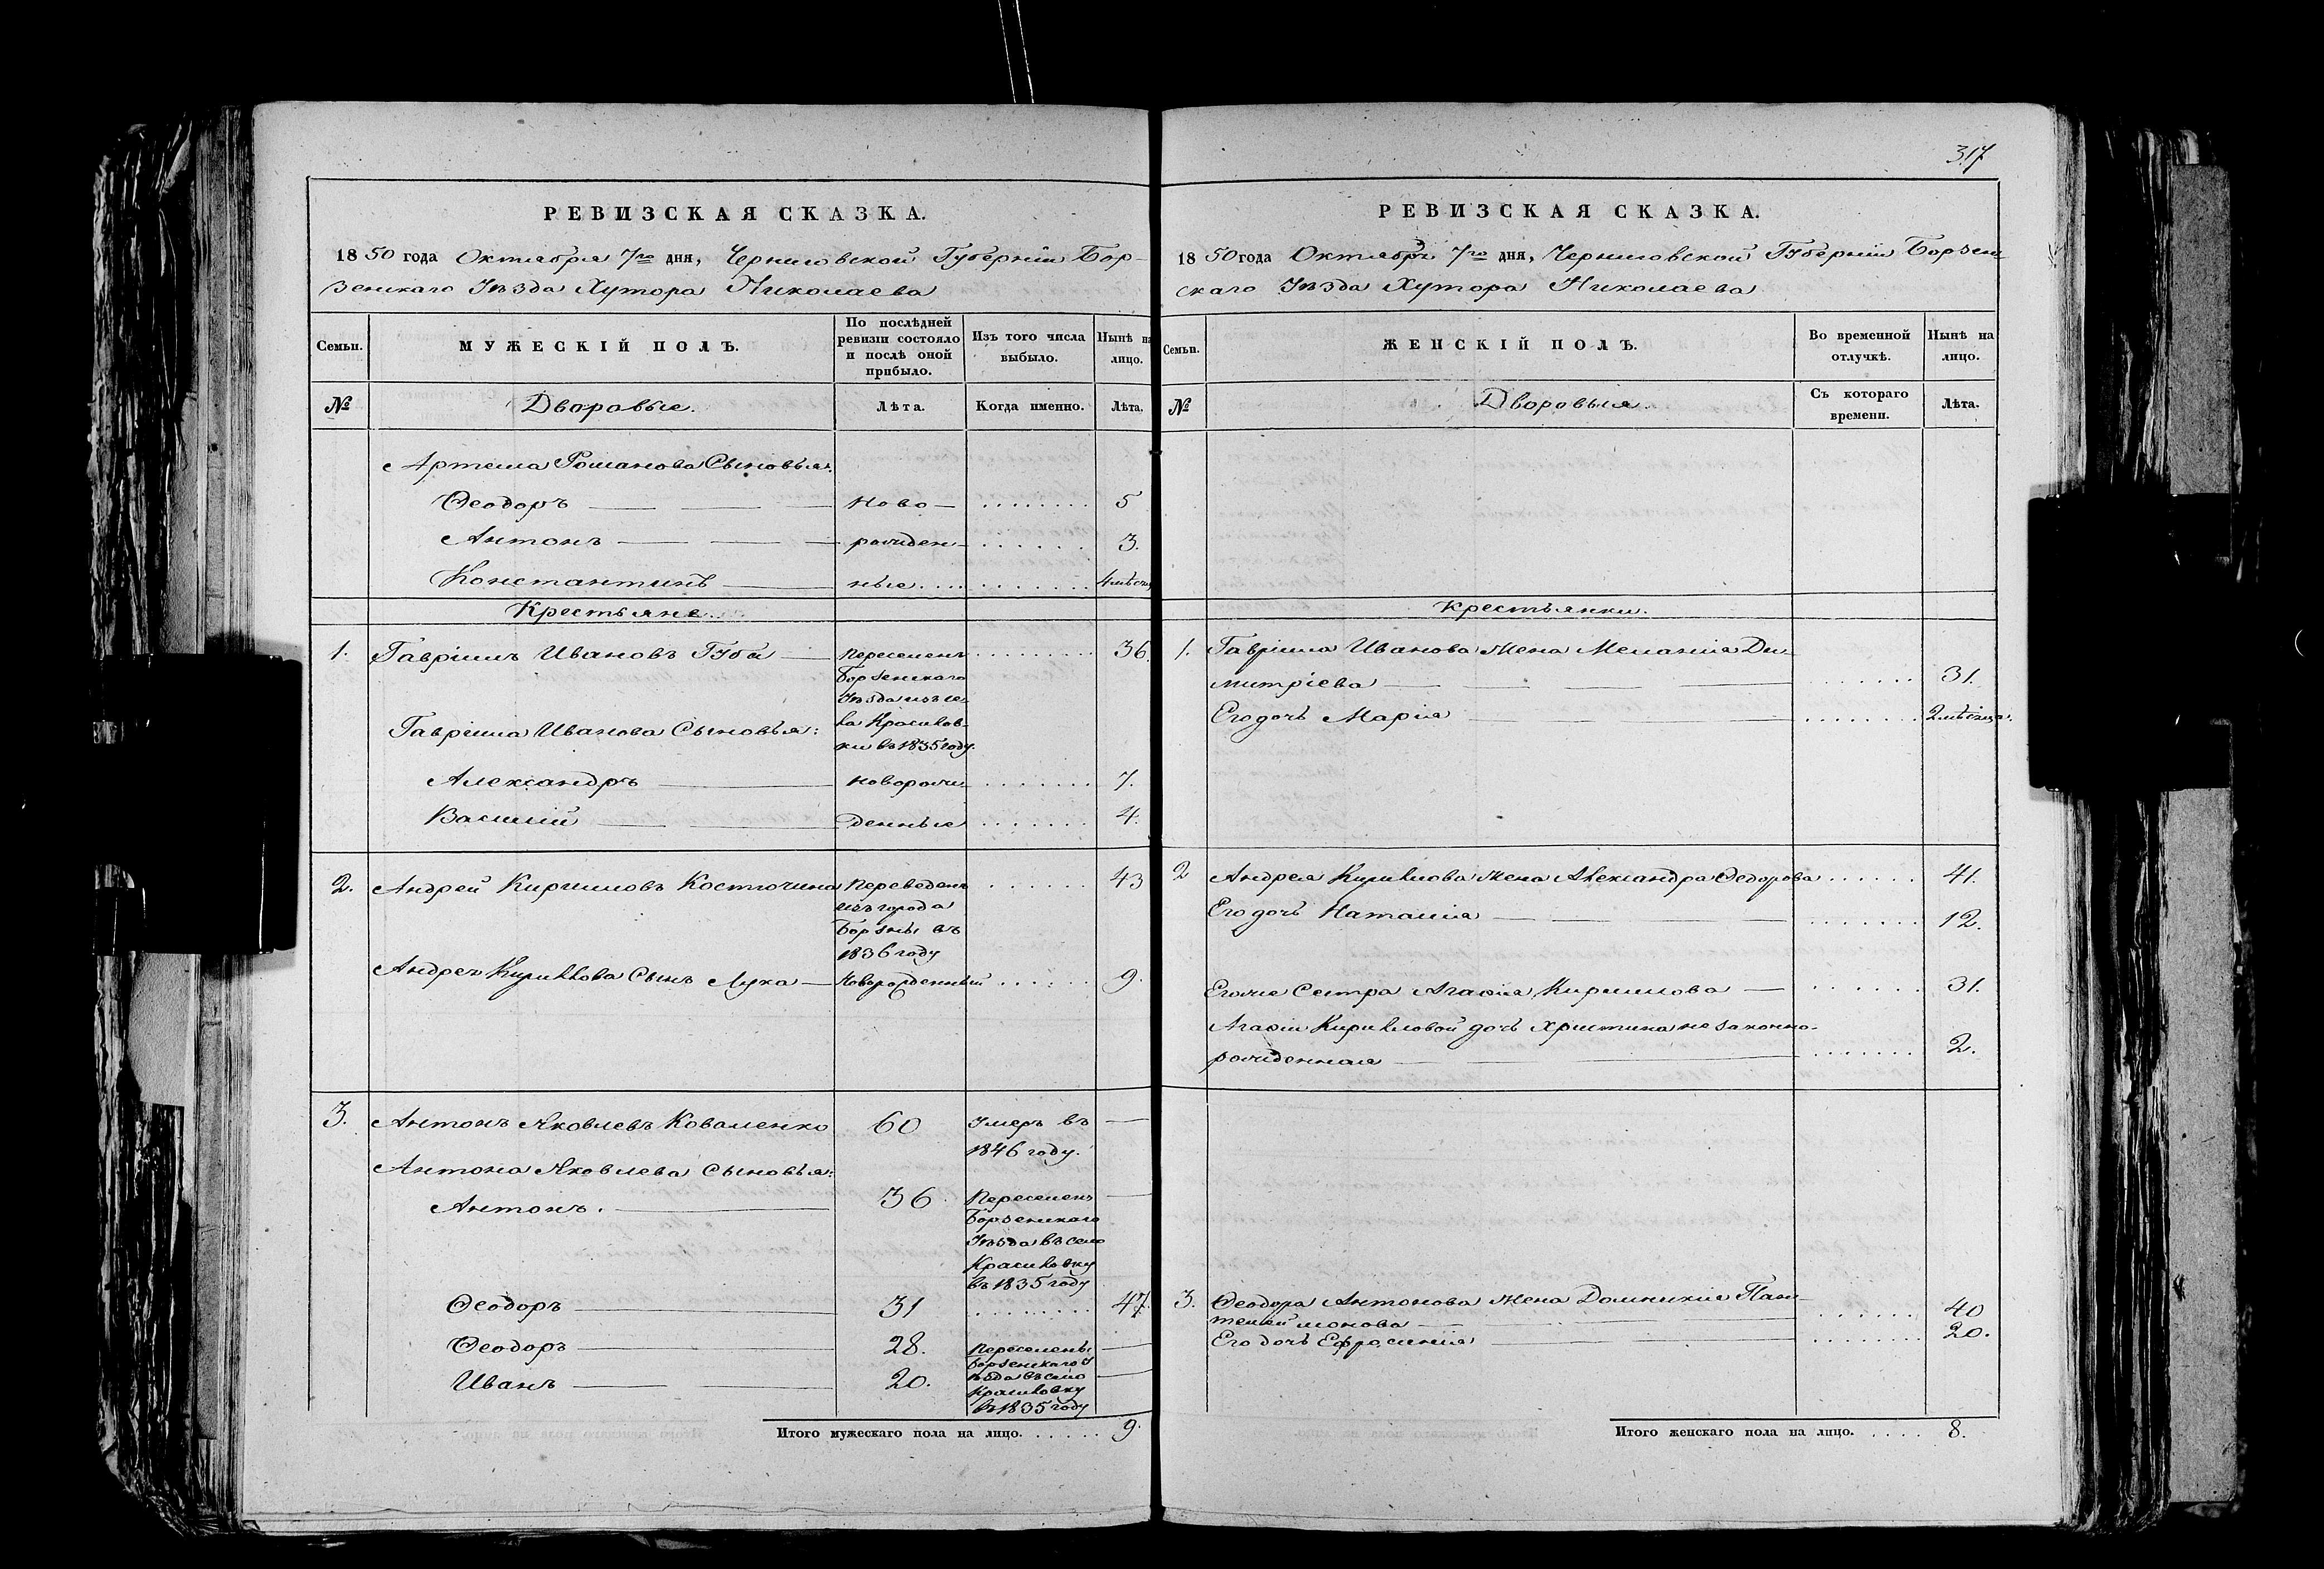 РЕВИЗСКАЯ СКАЗКА.
1850 года Октября 7го дня, Черниговской Губерніи Бор-
зенскаго Уѣзда Хутора Николаева
Семьи.
МУЖЕСКІЙ ПОЛЪ.
По послѣдней
ревизіи состояло
и послѣ оной
прибыло.
Изъ того числа
выбыло.
Нынѣ на
лицо.
№
Дворовые.
Лѣта.
Когда именно.
Лѣта.
Артема Романова Сыновья:
Ѳеодоръ ново- 5
Антонъ рожден- 3.
Константинъ ные 4 мѣсяц
Крестьяне.
1. Гавріилъ Ивановъ Губа Переселенъ 36.
Борзенскаго
Уѣзда изъ се-
ла Красилов-
ки въ 1835 году.
Гавріила Иванова Сыновья:
Александръ Новорож- 7.
Василій денные 4.
2. Андрей Кириловъ Костючина Переведенъ 43
изъ города
Борзны въ
1836 году
Андрея Кирилова Сынъ Лука Новорожденный 9.
3. Антонъ Яковлевъ Коваленко 60 Умеръ въ
1846 году.
Антона Яковлева Сыновья:
Антонъ. 36. Переселенъ
Борзенскаго
Уѣзда въ село
Красиловку
въ 1835 году
Ѳеодоръ 31 47.
Ѳеодоръ 28. Переселены
Иванъ 20. Борзенскаго У
ѣзда въ село
Красиловку
въ 1835 году
Итого мужескаго пола на лицо. 9.
317
РЕВИЗСКАЯ СКАЗКА.
1850 года Октября 7го дня, Черниговской Губерніи Борзен-
скаго Уѣзда Хутора Николаева
Семьи.
ЖЕНСКІЙ ПОЛЪ.
Во временной
отлучкѣ.
Нынѣ на
лицо.
№
Дворовыя.
Съ котораго
времени.
Лѣта.
Крестьянки.
1. Гавріила Иванова жена Меланія Ди-
митріева 31.
Его дочь Марія 2 мѣсяца.
2 Андрея Кирилова жена Александра Ѳедорова 41.
Его дочь Наталія 12.
Его же Сестра Агафія Кирилова 31.
Агафіи Кириловой дочь Христина не законно-
рожденная 2.
3. Ѳеодора Антонова жена Домникія Пан-
телеймонова 40
Его дочь Ефросинія 20.
Итого женскаго пола на лицо. 8.